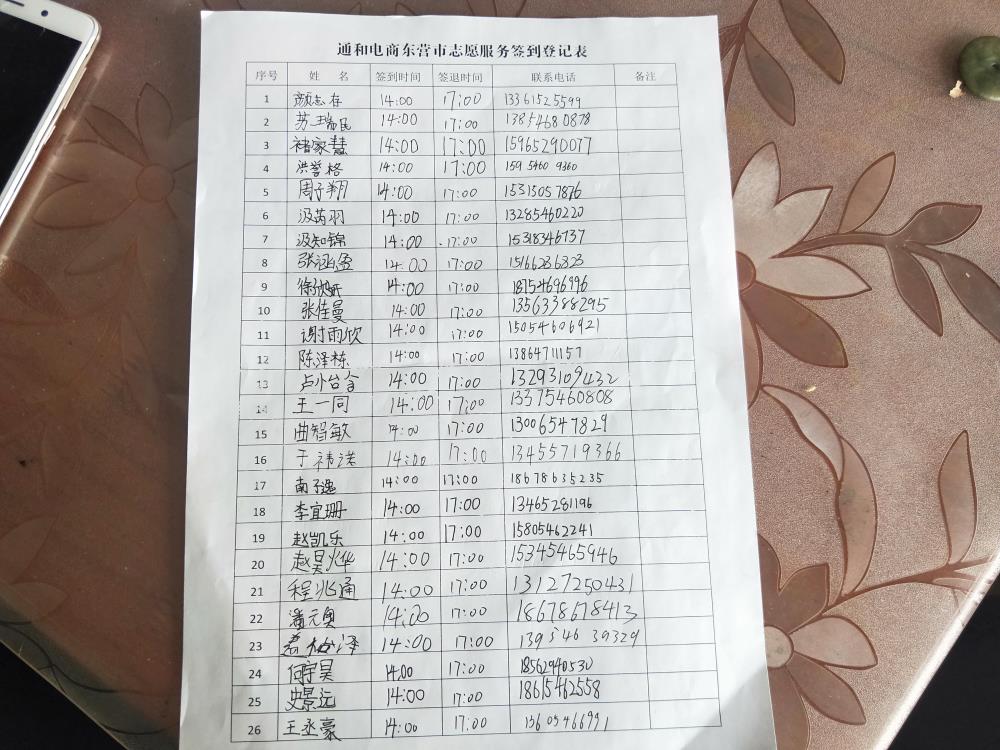 通和电商东营市志愿服务签到登记表
序号 姓 名 签到时间 签退时间 联系电话 备注
1 颜志存 14:00 17:00 13361525599
2 苏瑞民 14:00 17:00 13854680878
3 褚家慧 14:00 17:00 15965290077
4 洪誉格 14:00 17:00 159 5460 9360
5 周子翔 14:00 17:00 15315057876
6 汲芮羽 14:00 17:00 13285460220
7 汲知锦 14:00 17:00 15318346737
8 张涵盈 14:00 17:00 15166286823
9 14:00 17:00 18754696996
10 张佳曼 14:00 17:00 13563388295
11 谢雨欣 14:00 17:00 15054606921
12 陈泽栋 14:00 17:00 13864711157
13 卢小台 14:00 17:00 13293109432
14 王一同 14:00 17:00 13375460808
15 曲智敏 14:00 17:00 13006547829
16 于祎洋 14:00 17:00 13455719366
17 南子逸 14:00 17:00 18678635235
18 李宜珊 14:00 17:00 13465281196
19 赵凯乐 14:00 17:00 15805462241
20 赵昊烨 14:00 17:00 15345465946
21 程兆通 14:00 17:00 13127250431
22 潘元奥 14:00 17:00 18678678413
23 14:00 17:00 139 546 39329
24 何宇昊 14:00 17:00 18562940530
25 史景远 14:00 17:00 18615462558
26 王丞豪 14:00 17:00 13605466991